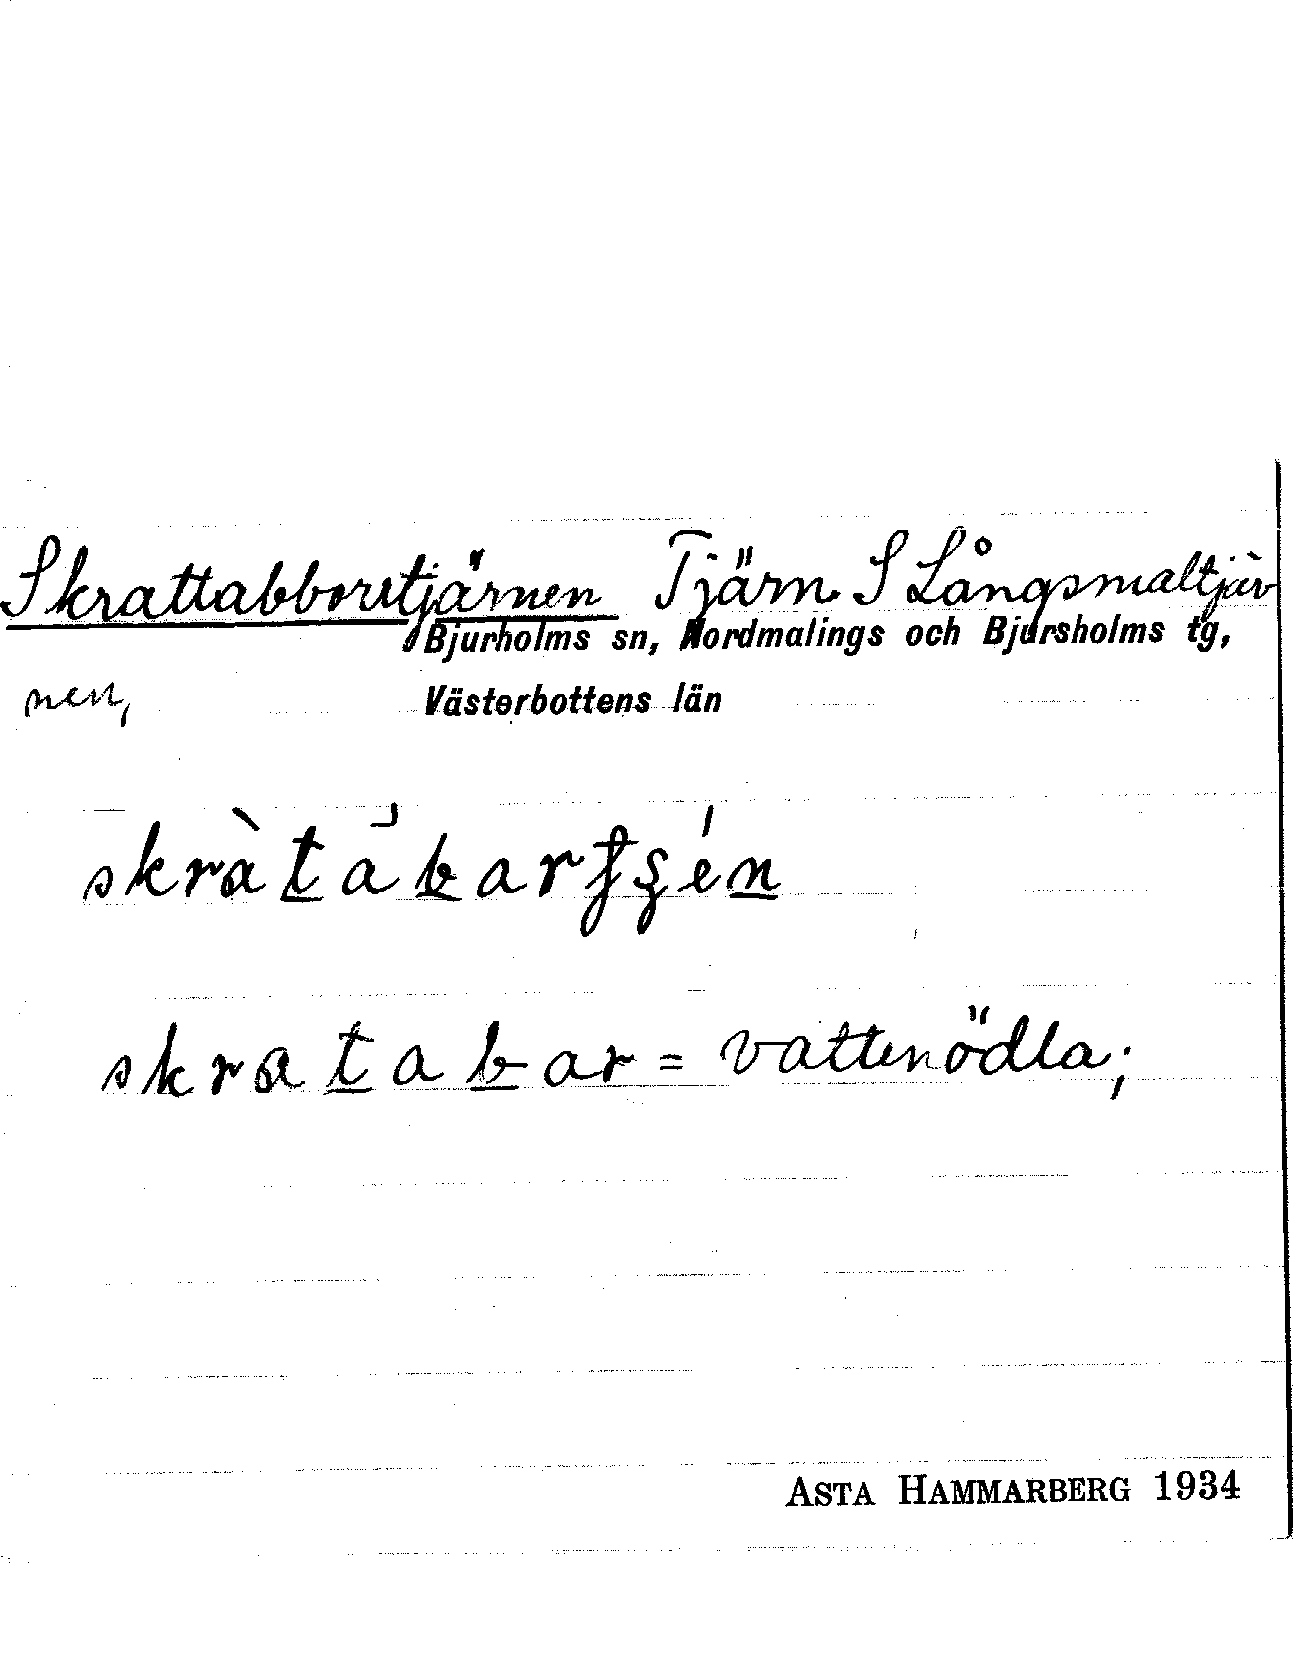 Skrattabborrtjärnen Tjärn S Långsmaltjär
Bjurholms sn, Nordmalings och Bjursholms tg,
nen, Västerbottens län
skràtábarʈʂén
skratabar = vattenödla;
ASTA HAMMARBERG 1934